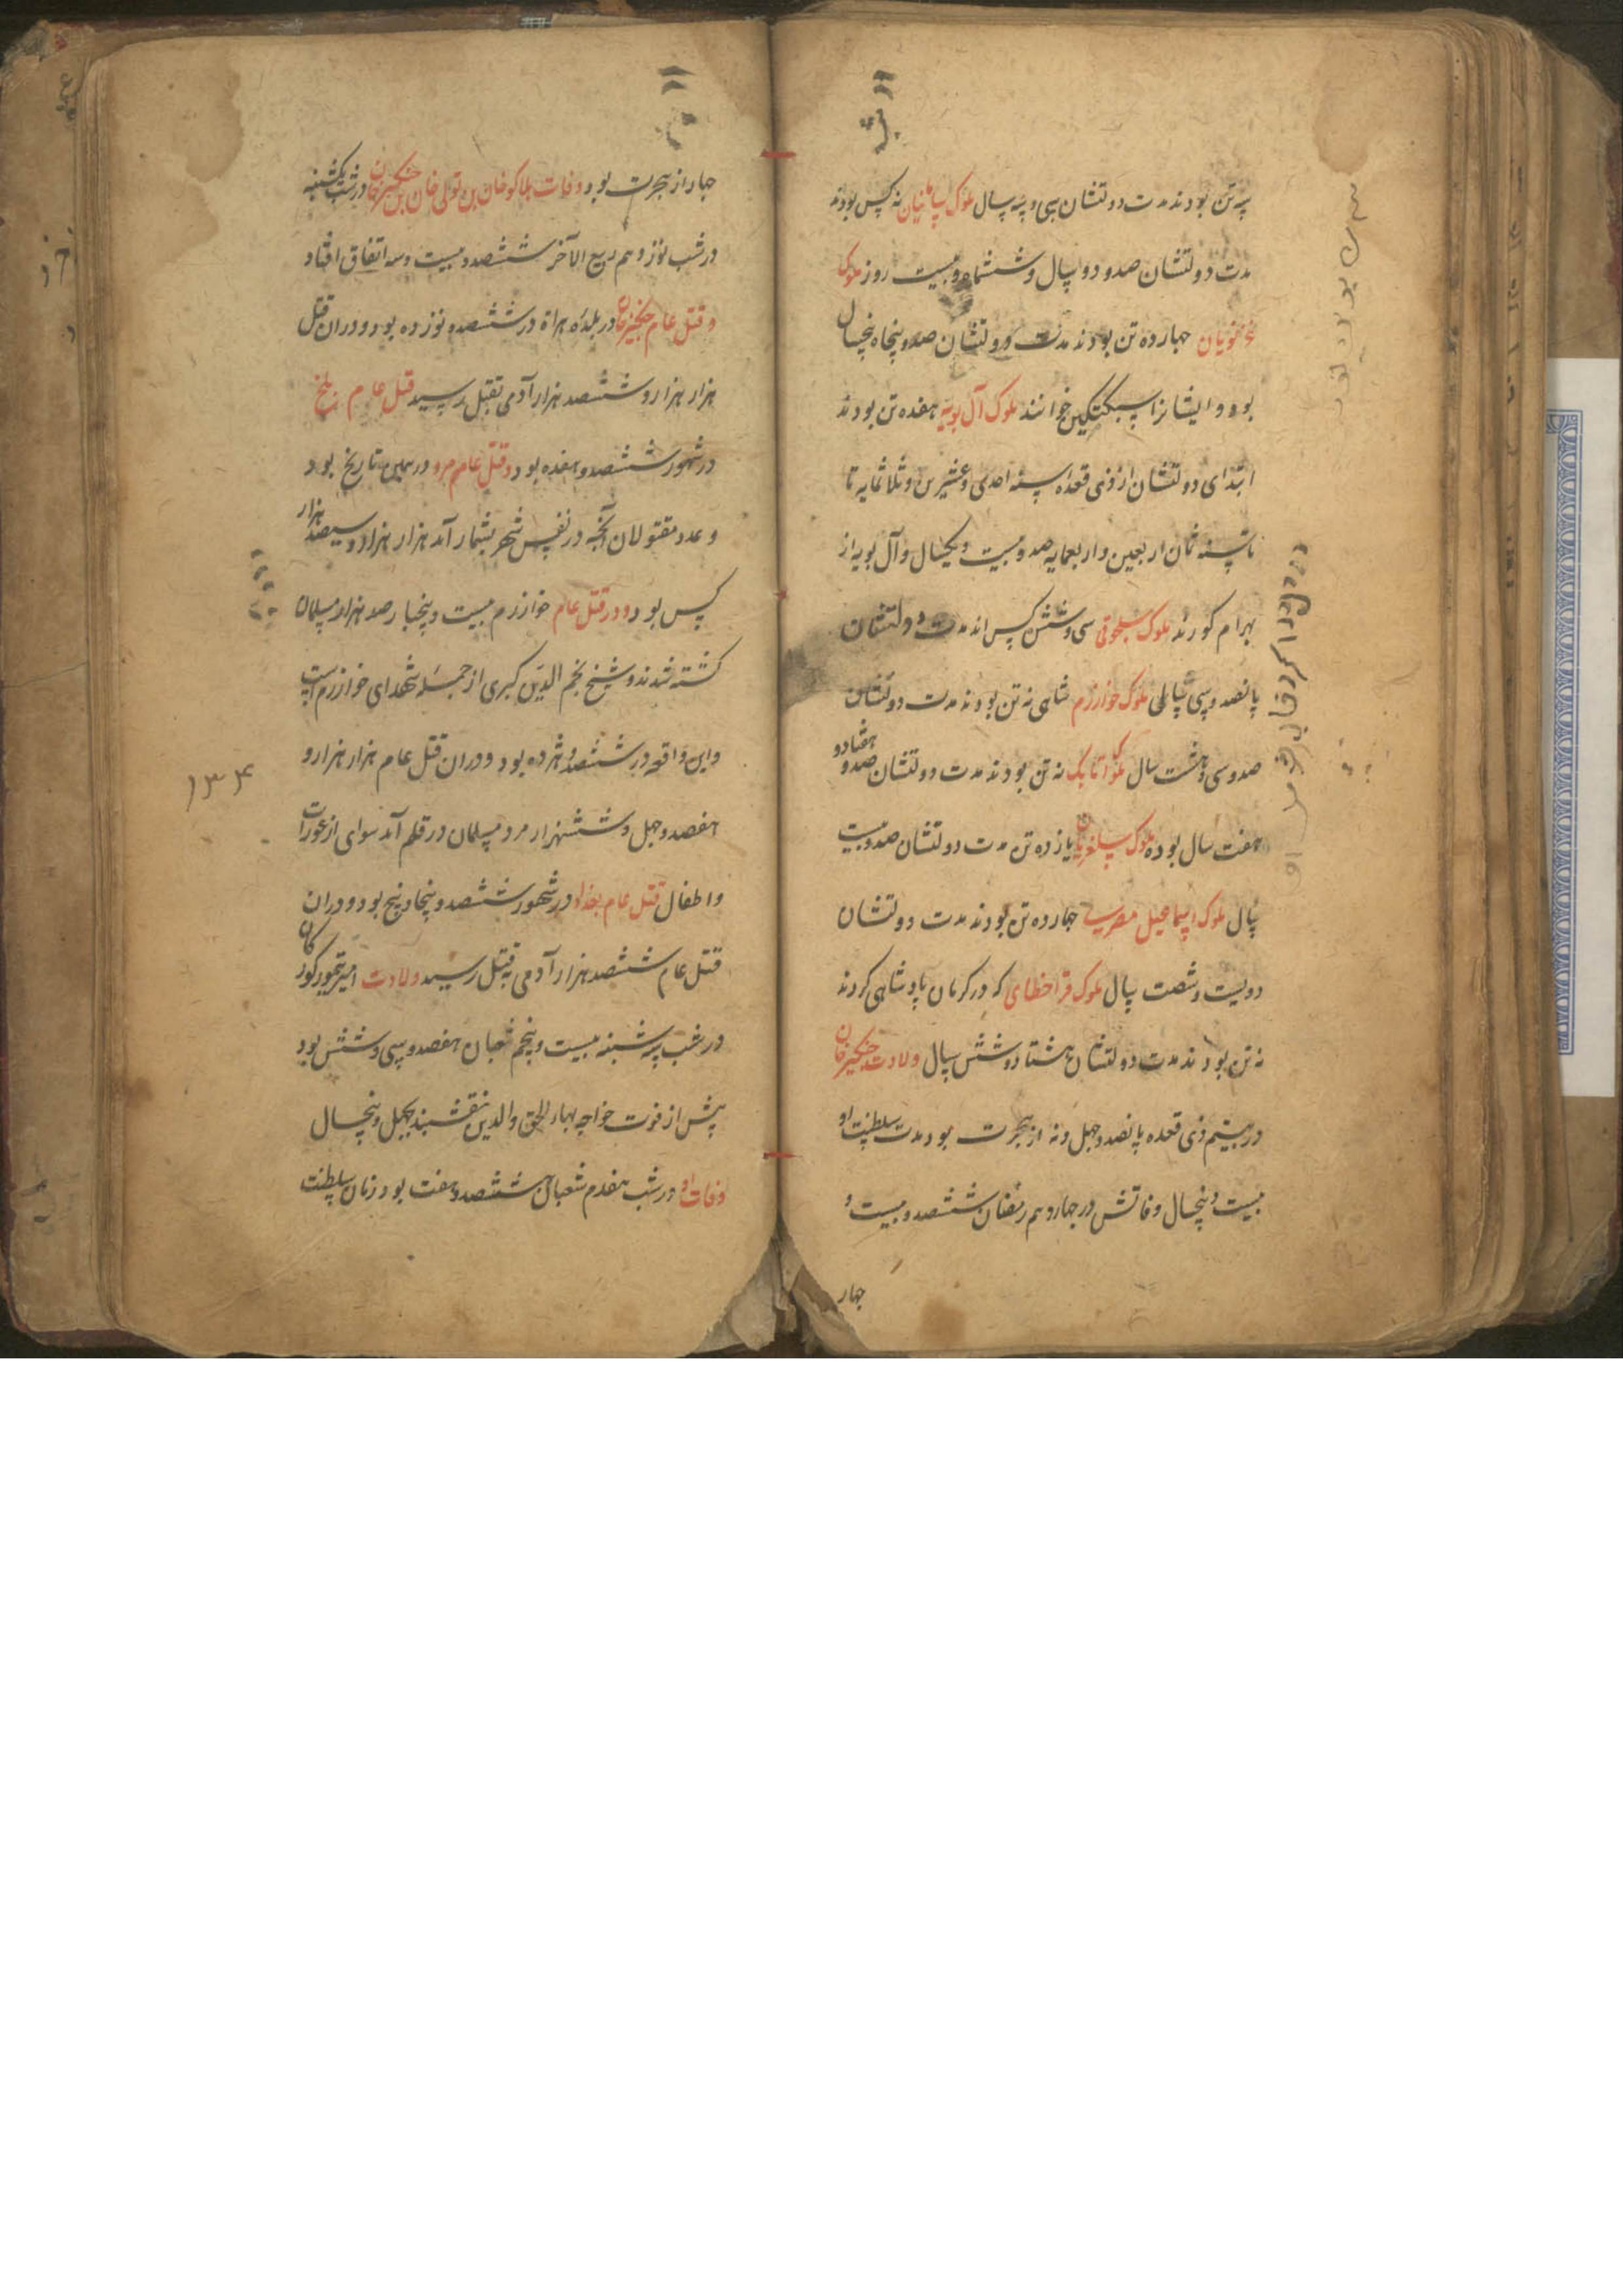 سه تن بودند مدت دولتشان سی و سه سال ملوک سامانیان نه کس بودند
مدت دولتشان صد و دو سال و ششماه و بیست روز ملوک
غزنویان چهارده تن بودند مدت دولتشان صد و پنجاه پنجسال
بود و ایشانرا سبکتکین خوانند ملوک آل بویه هفده تن بودند
ابتدای دولتشان از ذی قعده سنه احدی و عشرین و ثلاثمایه تا
تا سنه ثمان اربعین و اربعمایه صد و بیست و یکسال و آل بویه از
بهرام کورند ملوک سلجوقی سی و شش کس اند مدت دولتشان
پانصد و سی سالی ملوک خوارزم شاهی نه تن بودند مدت دولتشان
صد و سی و هشت سال ملوک اتابک نه تن بودند مدت دولتشان صد و هفتاد و
هفت سال بوده ملوک سلغریان یازده تن مدت دولتشان صد و بیست
سال ملوک اسماعیل مصریه چهارده تن بودند مدت دولتشان
دویست و شصت سال ملوک قراخطای که در کرمان پادشاهی کردند
نه تن بودند مدت دولتشان هشتاد و شش سال ولادت چنکیز خان
در بیستم ذی قعده پانصد و چهل و نه از هجرت بود مدت سلطنت او
بیست و پنجسال وفاتش در چهاردهم رمضان ششصد و بیست و
چهار
چهار از هجرت بود و وفات هلاکو خان بن تولی خان بن چنکیز خان در شب یکشنبه
در شب نوزدهم ربیع الآخر ششصد و بیست و سه اتفاق افتاد
و قتل عام چنکیز خان در بلده هراة در ششصد و نوزده بود و در ان قتل
هزار هزار و ششصد هزار آدمی بقتل رسید قتل عام بلخ
در شهور ششصد و هفده بود و قتل عام مرو در همین تاریخ بود
و عدد مقتولان آنچه در نفس شهر بشمار آمد هزار هزار و سیصد هزار
کس بود و در قتل عام خوارزم بیست و پنجبار صد هزار مسلمان
کشته شدند و شیخ نجم الدین کبری از جمله شهدای خوارزم است
و این واقعه در ششصد و هژده بود و در ان قتل عام هزار هزار و
هفصد و چهل و ششهزار مرد مسلمان در قلم آمد سوای از عورات
و اطفال قتل عام بغداد در شهور ششصد و پنجاه و پنج بود و در ان
قتل عام ششصد هزار آدمی بقتل رسید ولادت امیر تیمور کورکان
در شب سه شنبه بیست و پنجم شعبان هفصد و سی و شش بود
پیش از فوت خواجه بهاء الحق والدین نقشبند بچهل و پنجسال
وفات او در شب هفدم شعبان ششصد و هفت بود زمان سلطنت
۱۳۴